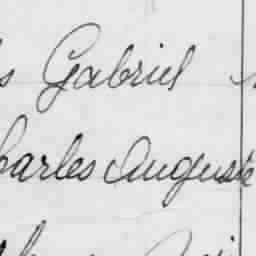 Gabriel
harles Auguste